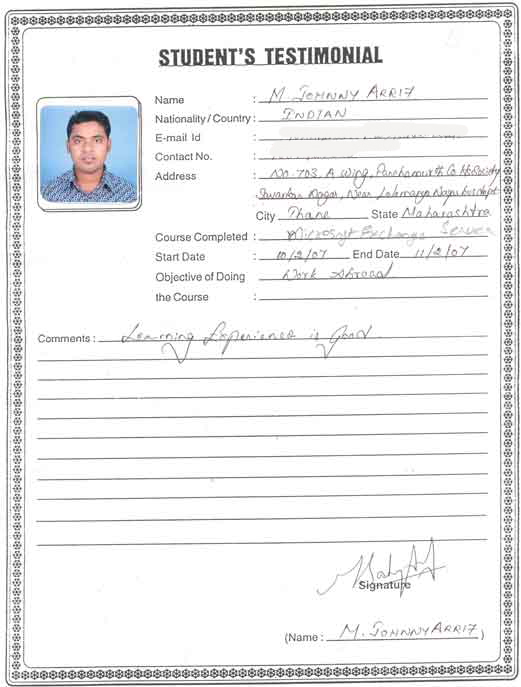 STUDENT'S TESTIMONIAL
Name : M. JOHNNY ARRIZ
Nationality / Country : INDIAN
E-mail Id :
Contact No. :
Address : No. 703, A wing,
Nagar, Near
City Thane State Maharashtra
Course Completed : Microsoft Exchange Server
Start Date : 10/2/07 End Date 11/2/07
Objective of Doing : Work Abroad
the Course :
Comments : Learning Experience is Good.
Signature
(Name : M. JOHNNY ARRIZ )